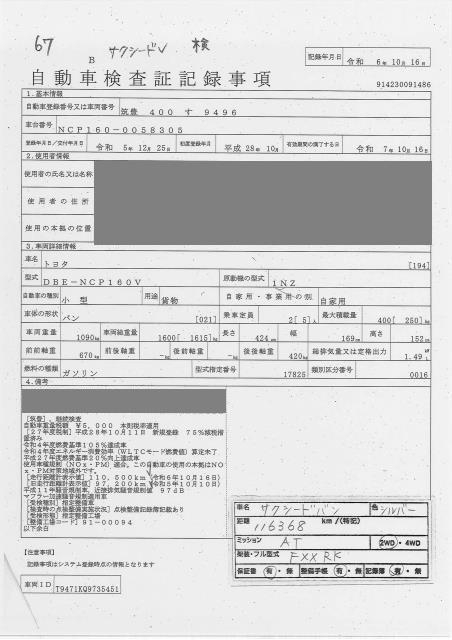 67
B
サクシードV 検
自動車検査証記録事項
記録年月日 令和 6年10月16日
914230091486
1.基本情報
自動車登録番号又は車両番号 筑豊 400 す 9496
車台番号 NCP160-0058305
登録年月日/交付年月日 令和 5年12月25日 初度登録年月 平成28年10月 有効期間の満了する日 令和 7年10月16日
2.使用者情報
使用者の氏名又は名称
使用者の住所
使用の本拠の位置
3.車両詳細情報
車名 トヨタ [194]
型式 DBE-NCP160V 原動機の型式 1NZ
自動車の種別 小型 用途 貨物 自家用・事業用の別 自家用
車体の形状 バン [021] 乗車定員 2[5]人 最大積載量 400[250]kg
車両重量 1090kg 車両総重量 1600[1615]kg 長さ 424cm 幅 169cm 高さ 152cm
前前軸重 670kg 前後軸重 -kg 後前軸重 -kg 後後軸重 420kg 総排気量又は定格出力 1.49
燃料の種類 ガソリン 型式指定番号 17825 類別区分番号 0016
4.備考
[筑豊],継続検査
自動車重量税額 ¥5,000 本則税率適用
[27年度税制]平成28年10月11日 新規登録 75%減税措置済み
令和4年度燃費基準105%達成車
令和4年度エネルギー消費効率(WLTCモード燃費値)算定未了
平成27年度燃費基準20%向上達成車
使用車種規制(NOx・PM)適合。この自動車の使用の本拠はNOx・PM対策地域外です。
[走行距離計表示値]110,500km(令和6年10月16日)
[旧走行距離計表示値]97,200km(令和5年10月10日)
平成11年騒音規制車、近接排気騒音規制値 97dB
マフラー加速騒音規制適用車
[受検種別]指定整備車
[検査時の点検整備実施状況]点検整備記録簿記載あり
[受検形態]指定整備工場
[整備工場コード]91-00094
以下余白
車名 サクシードバン 色 シルバー
距離 116368 km/(特記)
ミッション AT 2WD・4WD
架装・フル型式 FXXRK
保証書 有・無 整備手帳 有・無 記録簿 有・無
【注意事項】
記録事項はシステム登録時点の情報となります
車両ID T9471KQ9735451